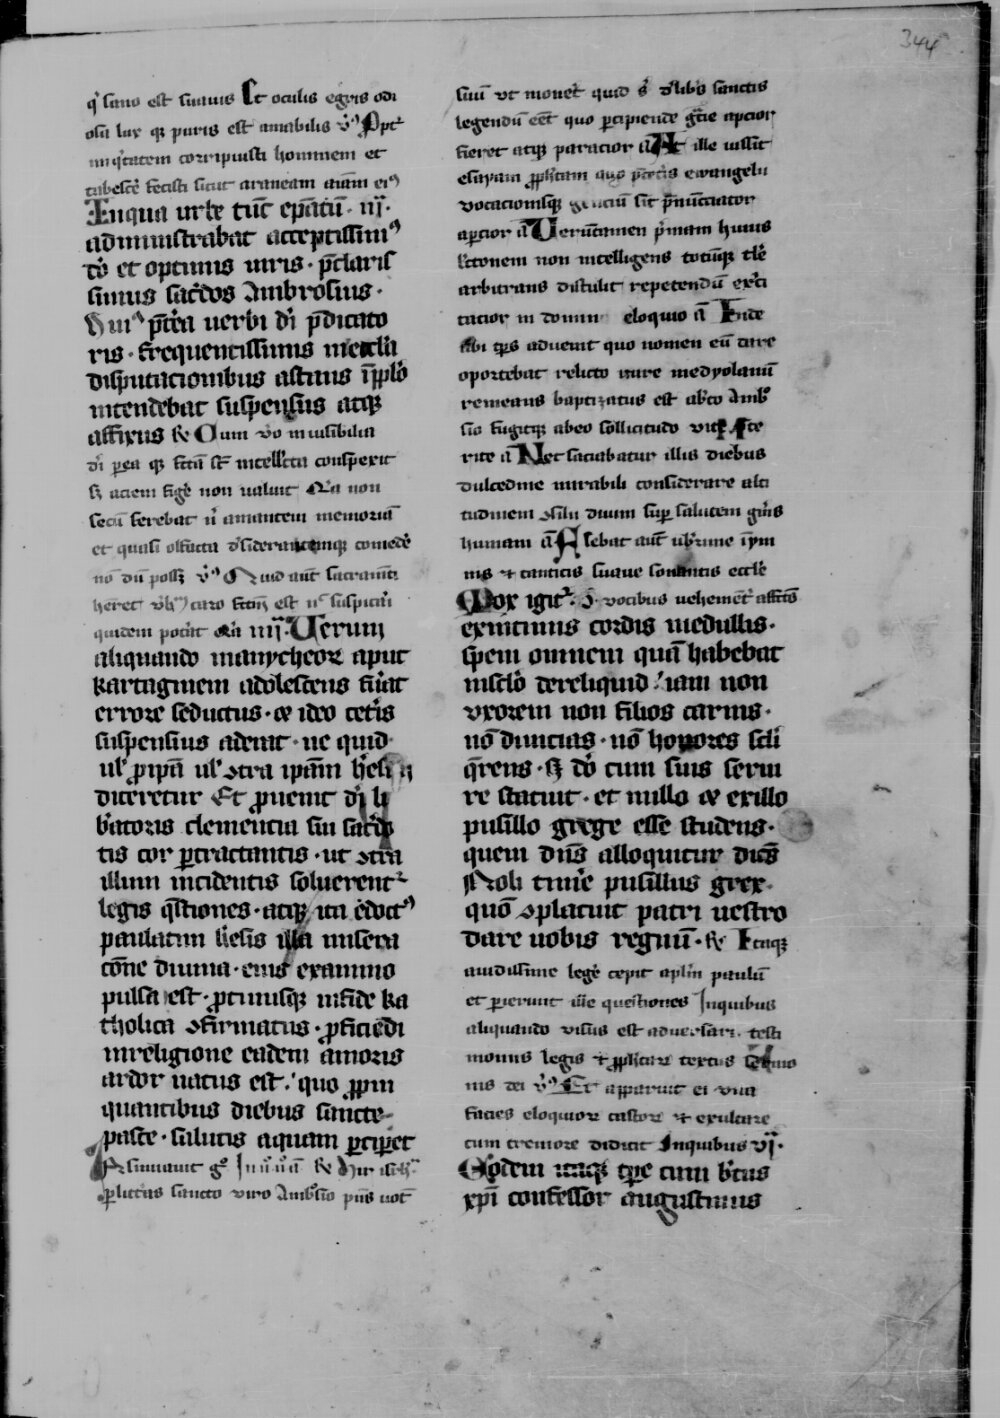 344
qͥ sano est suauis Et oculis egris odi
osa lux qͣ puris est amabilis v᷒ Ppt᷒
iniqͥtatem corripuisti hominem et
tabescẽ fecisti sicut araneam aĩam eiꝰ
Inqua urbe tũc ep̃atũ · iij ·
administrabat acceptissimꝰ
dõ et optimis uiris · p̃claris
simus sac̃dos Ambrosius ·
Huiꝰ p̃tẽa uerbi dĩ p̃dicato
ris · frequentissimis in eccl̃ia
disputacionibus astans ĩ pplõ
intendebat suspensus atqꝫ
affixus ℞ Cum vo inuisibilia
dĩ per ea que fctã st̃ intellecta conspexit
sꝫ aciem figẽ non ualuit Na non
secũ ferebat nĩ amantem memoriã
et quasi olfacta desiderantemqꝫ comedẽ
nõ dũ possꝫ v᷒ Quid aut̃ sacramẽti
hẽret vbũ caro fctm̃ est nͨ suspicari
quidem potãt iiij · Uerum
aliquando manycheoꝝ aput
kartaginem adolescens fũat
errore seductus · et ideo cetĩs
suspensius aderat · ne quid
ul̃ ꝓ ip̃a ul̃ ꝯtra ip̃am hẽsim
diceretur Et ꝓuenit dĩ li
bãtoris clemencia sui sac̃do
tis cor ꝑtractantis · ut ꝯtra
illum incidentis soluerent᷒
legis q̃stiones · atqꝫ ita edoctꝰ
paulatim hẽsis illa misera
cõne diuina · eius ex animo
pulsa est · ꝓtinusqꝫ in fide ka
tholica ꝯfirmatus · ꝓficiẽdi
in religione eadem amoris
ardor natus est · quo ꝓpin
quantibus diebus sancte
pasce · salutis aquam ꝑciperet
Insinuauit gͦ ℞
ꝑ litteras sancto viro Ambrosio p̃ns uot̃
suũ vt moneret quid de libris sanctis
legendũ eẽt quo percipiende gr̃cie apcior
fieret atqꝫ paracior a At ille iussit
esayam ꝓph̃tam quo p̃ cetĩs ewangelii
vocacionisqꝫ genciũ sit p̃nũciator
apercior a Uerũtamen p̃mam huius
lc̃tionem non intelligens totũqꝫ tlẽ
arbitrans distulit repetendũ exci
tacior in domini eloquio a Inde
ubi tp̃s aduenit quo nomen eũ dare
oportebat relicto rure medyolanũ
remeans baptizatus est ab sc̃o Ambͦ
sio fugitqꝫ ab eo sollicitudo vite p̃te
rite a Nec saciabatur illis diebus
dulcedine mirabili considerare alti
tudinem ꝯsilii diuini suꝑ salutem gñis
humani a Flebat aut̃ ub̃rime ĩ ym
nis et canticis suaue sonantis eccl̃e
Mox igit᷒ · vocibus uehement᷒ affectͦ
ex intimis cordis medullis ·
spem omnem quã habebat
in sclõ dereliquid · iam non
vxorem non filios carnis ·
nõ diuicias · nõ honores scli
q̃rens · sꝫ dõ cum suis serui
re statuit · et in illo et ex illo
pusillo grege esse studens ·
quem dñs alloquitur dic̃s
Noli timẽ pusillus grex
quõ ꝯplacuit patri uestro
dare uobis regnũ · ℞ Itaqꝫ
auidissime legẽ cepit aplm̃ paulũ
et perierunt ille questiones In quibus
aliquando visus est aduersari testi
moniis legis et ꝓphetaꝝ textus sermo
nis dei v᷒ Et apparuit ei vna
facies eloquioꝝ castoꝝ et exultare
cum tremore didicit In quibus vj ·
Eodem itaqꝫ tp̃e cum b̃tus
xp̃i confessor augustinus